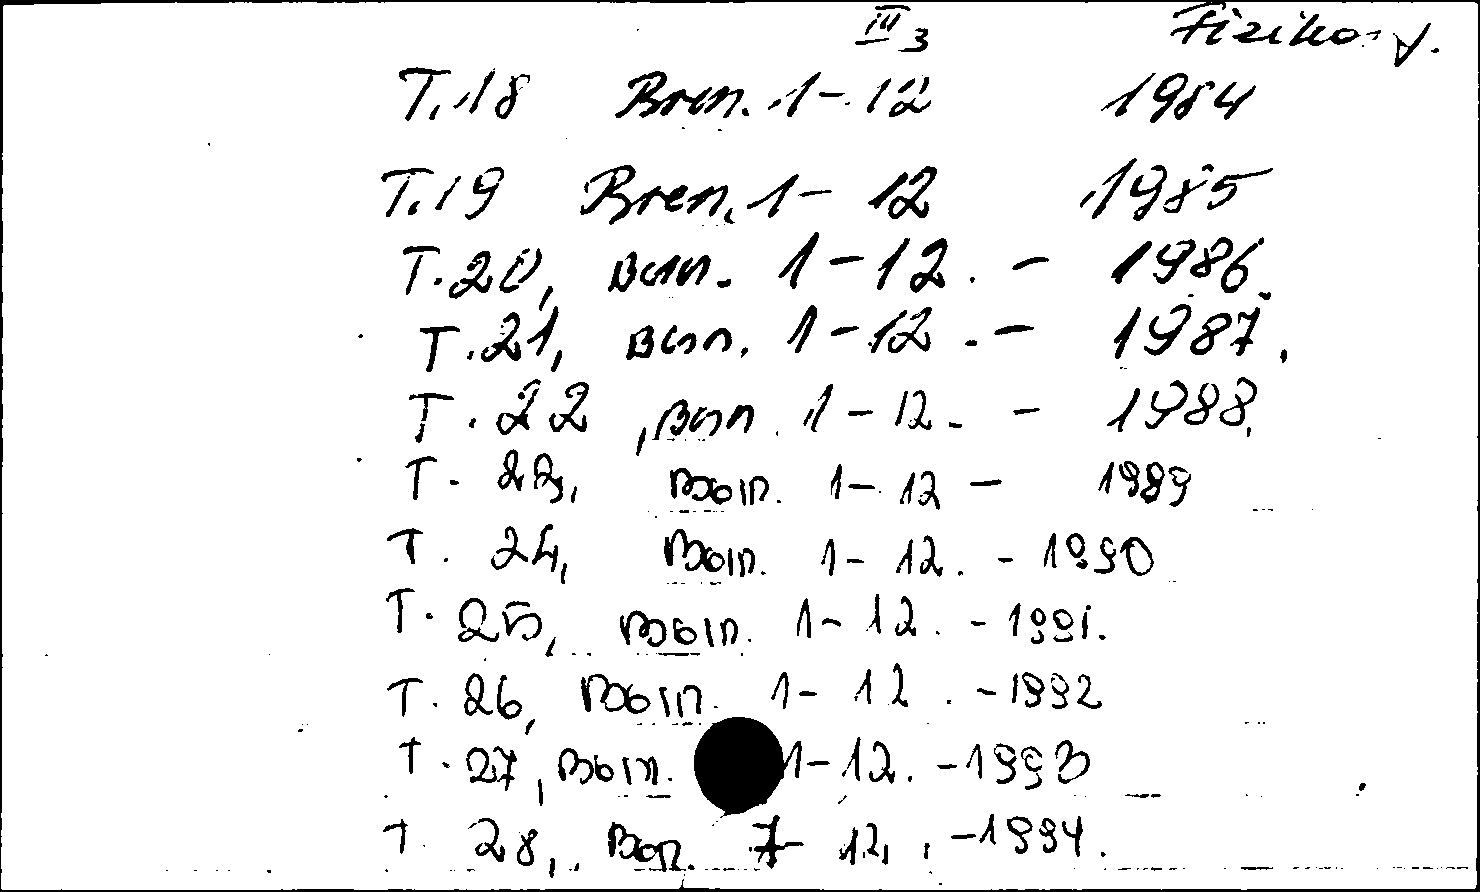 III 3 Fizika
T.18 Вып. 1-12 1984
T.19 Вып. 1- 12 1985
T.20, Вып. 1-12. - 1986.
T.21, Вып. 1-12. - 1987.
T. 22, Вып. 1-12. - 1988.
T. 23, Вып. 1- 12 - 1989
T. 24, Вып. 1- 12. - 1990
T. 25, Вып. 1- 12. - 1991.
T. 26, Вып. 1- 12. - 1992
T. 27, Вып. 1-12. - 1993
T. 28, Вып. 7- 12, - 1994.